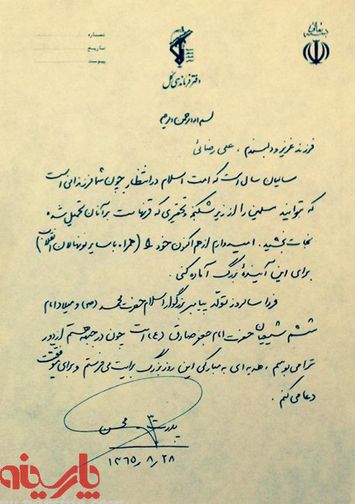 شماره
تاریخ
پیوست
دفتر فرماندهی کل
بسمه تعالی
بسم الله الرحمن الرحیم
فرزند عزیز و دلبندم، علی رضائی
سالیان سال است که امت اسلام در انتظار چون شما فرزندانی است
که بتوانید مسلمین را از زیر شکنجه و تحقیری که قرنهاست بر آنان تحمیل شده
نجات بخشید. امیدوارم از هم اکنون خود را (همراه با سایر نونهالان انقلاب)
برای این آیندهٔ بزرگ آماده کنی.
فردا سالروز تولد پیامبر بزرگوار اسلام حضرت محمد (ص) و میلاد امام
ششم شیعیان حضرت امام جعفر صادق (ع) است چون در جبهه هستم و از دور
ترا می‌بوسم، هدیه‌ای به مبارکی این روز بزرگ برایت می‌فرستم و برای موفقیت
دعا می‌کنم.
پدرت محسن
۱۳۶۵/۸/۲۸
پارسینه